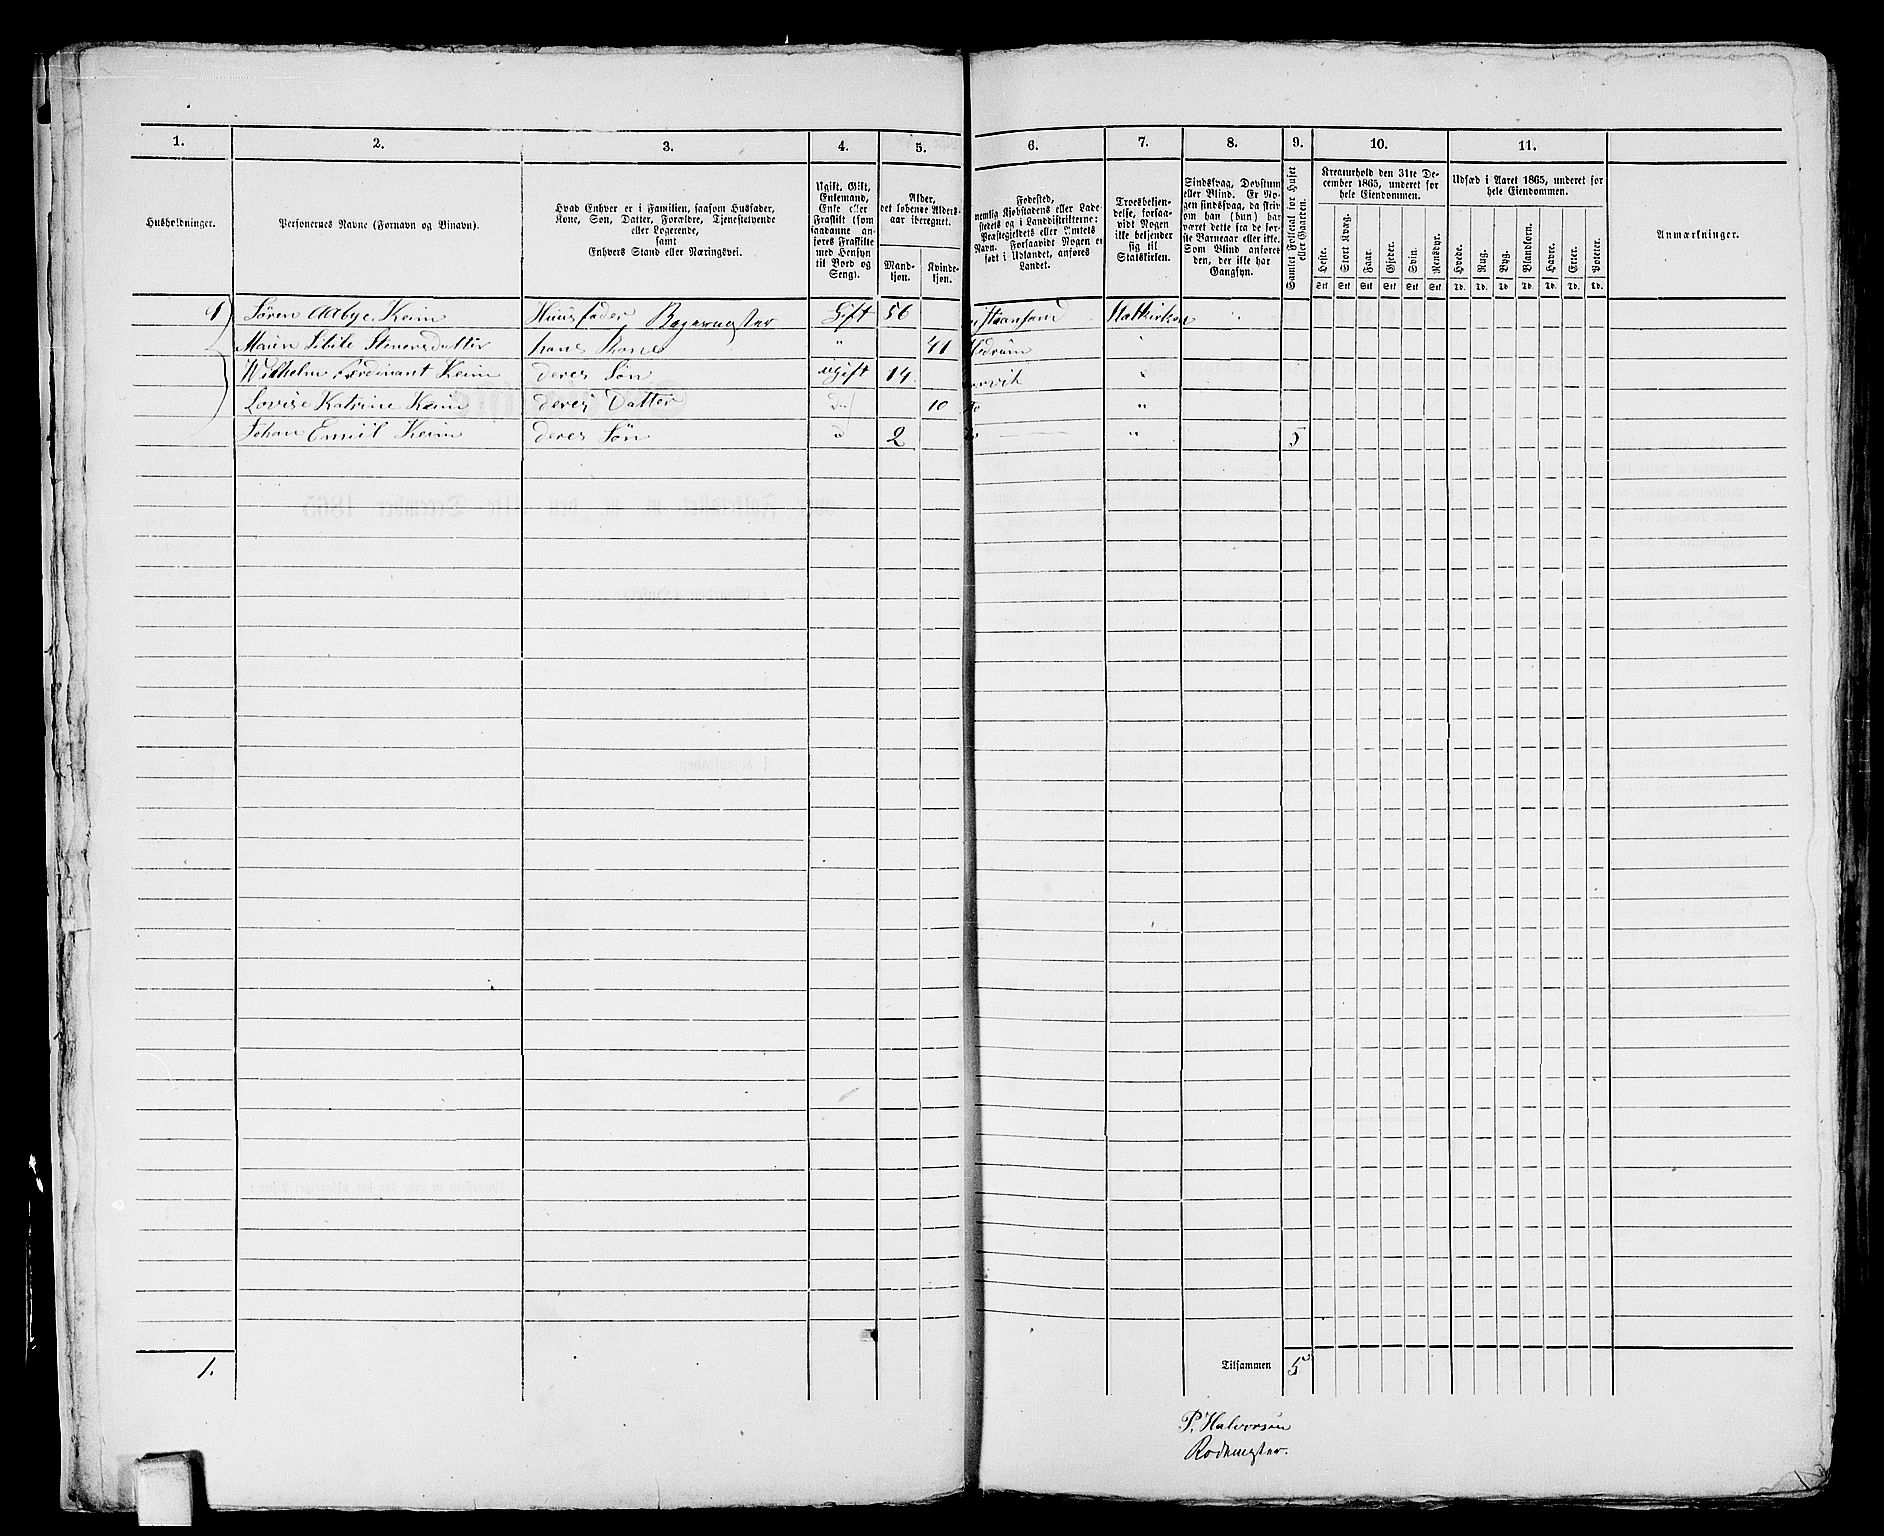 1. 2. 3. 4. 5. 6. 7. 8. 9. 10. 11.
Husholdninger.
Personernes Navne (Fornavn og Binavn).
Hvad Enhver er i Familien, saasom Husfader,
Kone, Søn, Datter, Forældre, Tjenestetyende
eller Logerende,
samt
Enhvers Stand eller Næringsvei.
Ugift, Gift,
Enkemand,
Enke eller
Fraskilt (som
saadanne an-
føres Fraskilte
med Hensyn
til Bord og
Seng).
Alder,
det løbende Alders-
aar iberegnet.
Mand-
kjøn.
Kvinde-
kjøn.
Fødested,
nemlig Kjøbstadens eller Lade-
stedets og i Landdistrikterne:
Præstegjeldets eller Amtets
Navn. Forsaavidt Nogen er
født i Udlandet, anføres
Landet.
Troesbekjen-
delse, forsaa-
vidt Nogen
ikke bekjender
sig til
Statskirken.
Sindssvag, Døvstum
eller Blind. Er No-
gen sindssvag, da skriv
om han (hun) har
været dette fra de før-
ste Barneaar eller ikke.
Som Blind anføres
den, der ikke har
Gangsyn.
Samlet Folketal for Huset
eller Gaarden.
Kreaturhold den 31te De-
cember 1865, underet for
hele Eiendommen.
Heste. Stort Kvæg. Faar Gjeder. Svin. Rensdyr.
Stk Stk Stk Stk Stk Stk
Udsæd i Aaret 1865, underet for
hele Eiendommen.
Hvede. Rug. Byg. Blandkorn. Havre. Erter. Poteter.
Td. Td. Td Td. Td. Td. Td.
Anmærkninger.
1 Søren Aabye Keim Huusfader Bagermester Gift 56 istiansand Statkirken "
Maren Sibile Stenersdatter hans Kone " 41 Hedrum "
Wilhelm Ferdinant Keim deres Søn ugift 14 arvik "
Lovise Katrine Keim deres Datter 10 "
Johan Emiil Keim deres Søn 2 " 5
1. Tilsammen 5
P. Halvorsen
Rodemester.